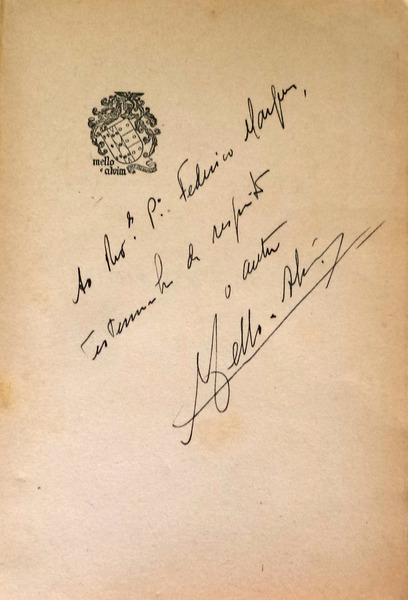 mello
alvim
Ao Rev.º P.e Federico Marques,
Testemunho de respeito
o autor
Mello-Alvim